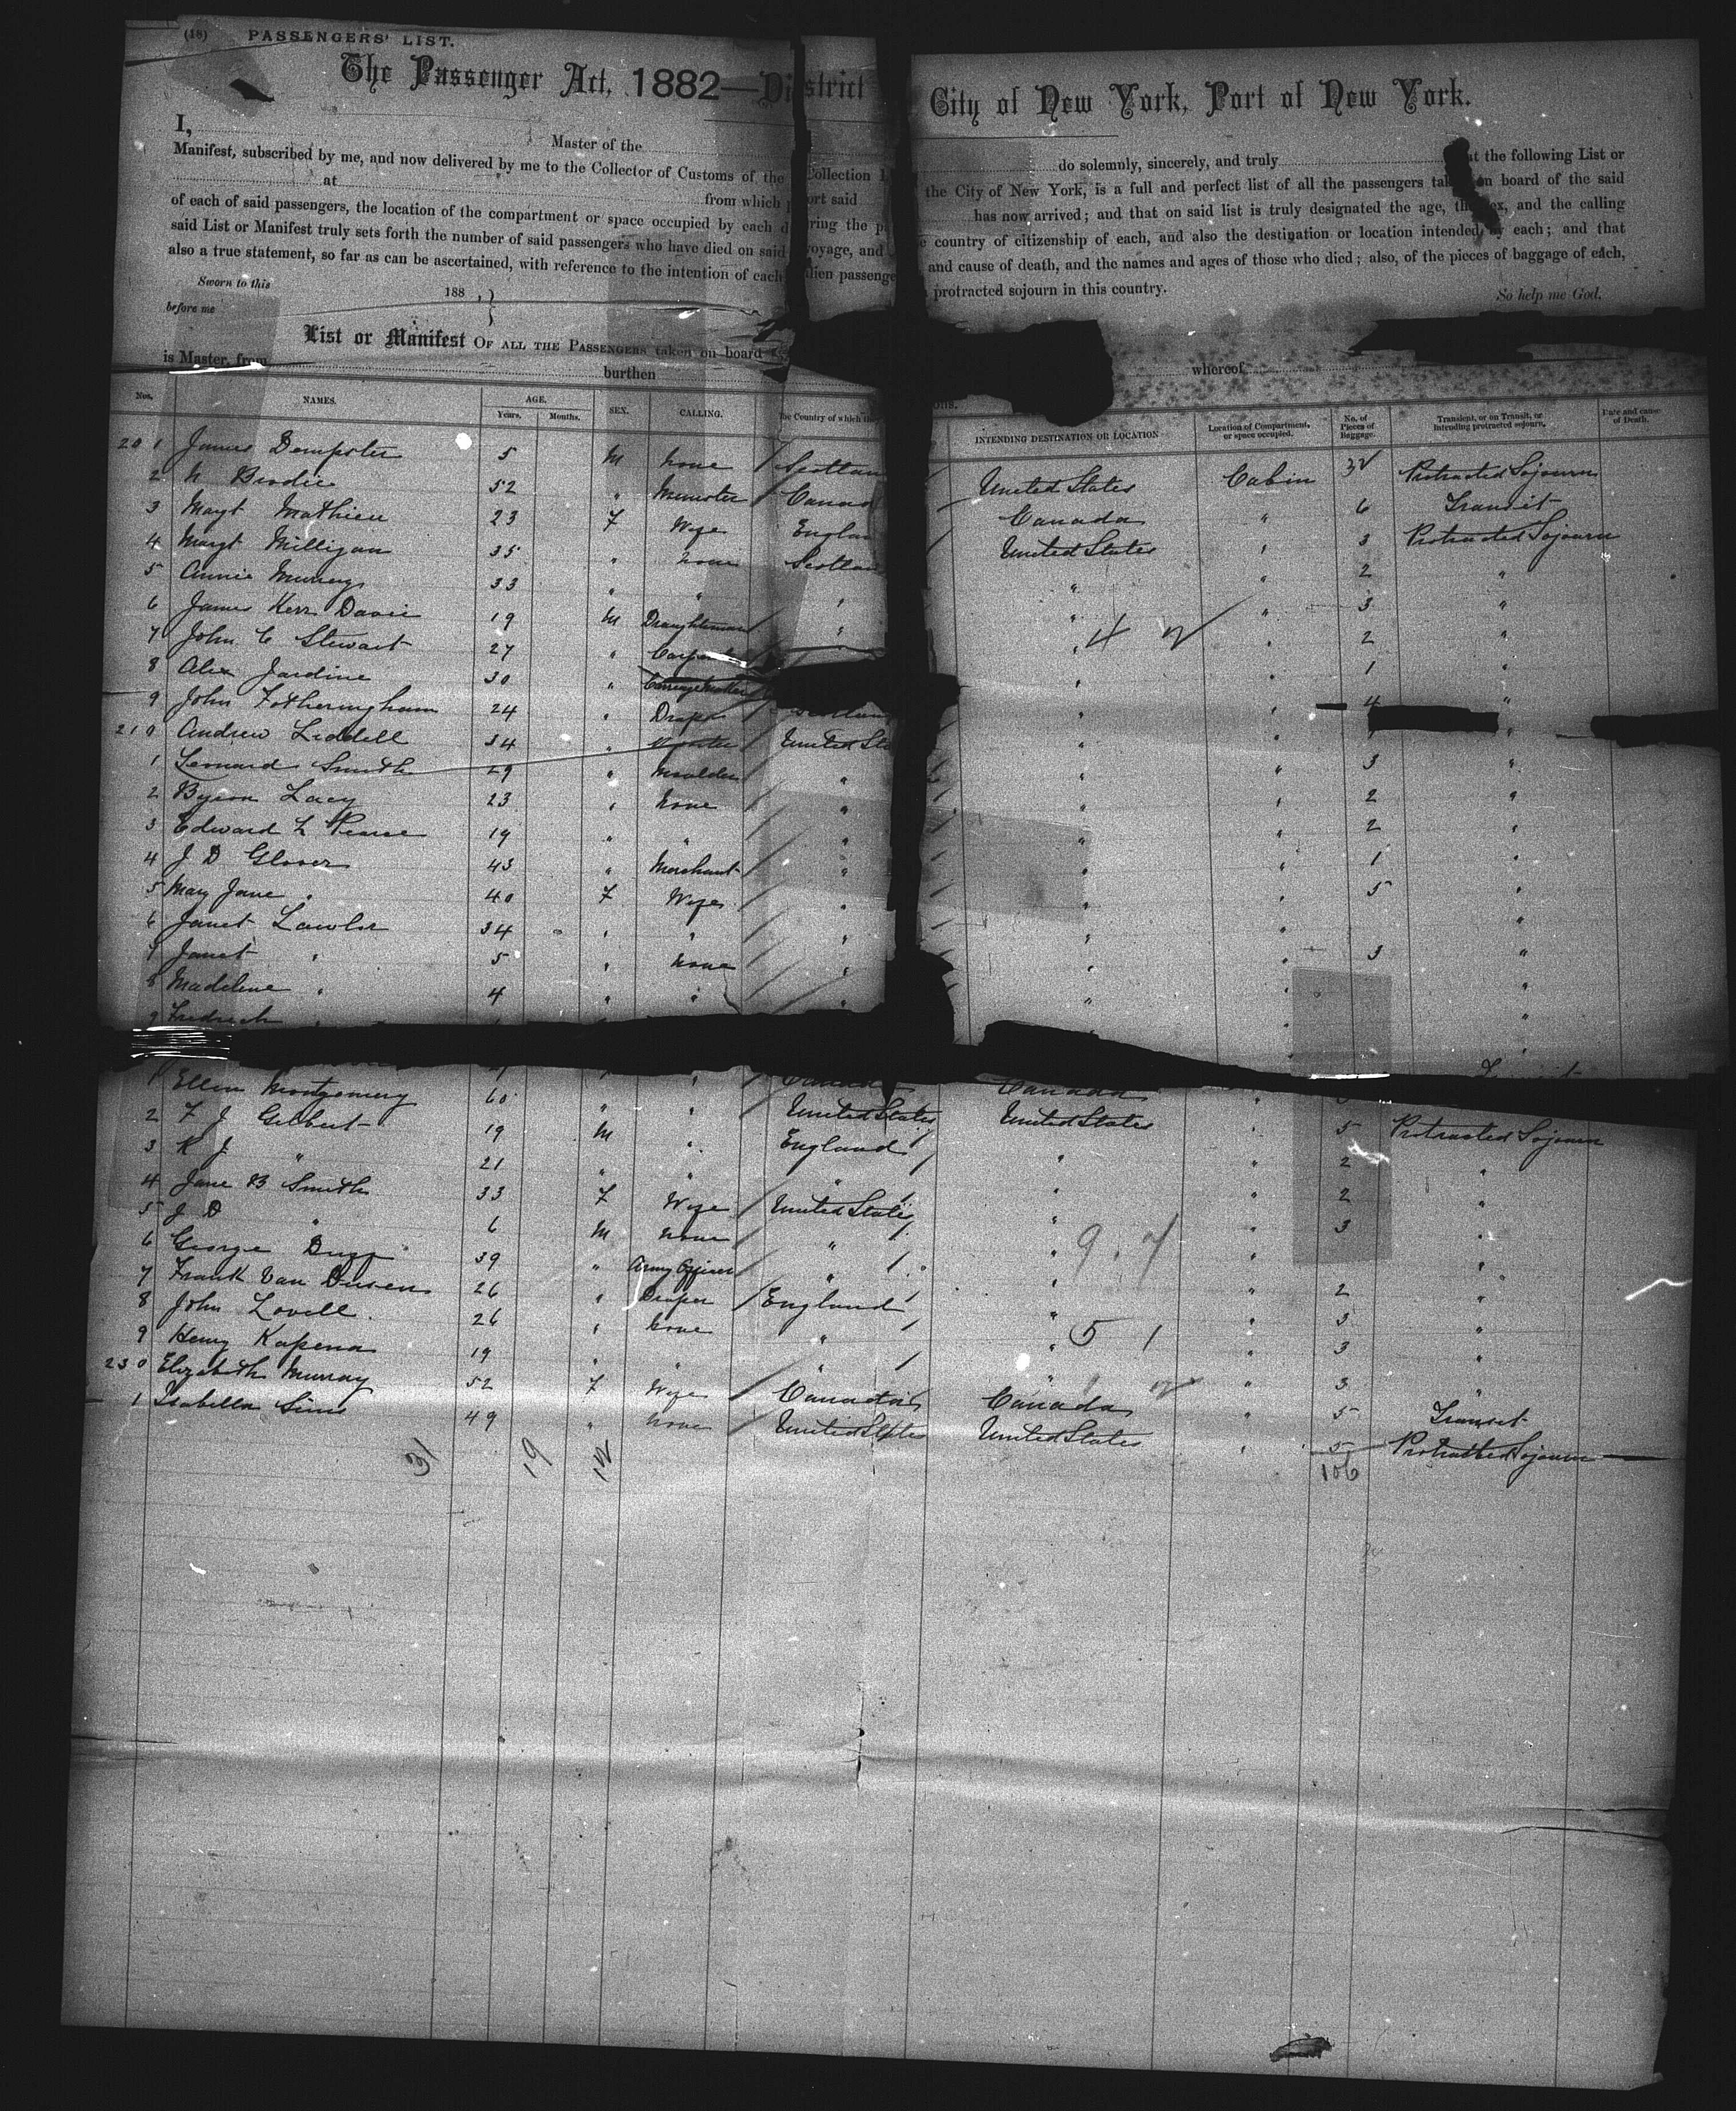 (18) PASSENGERS' LIST.
The Passenger Act, 1882—District City of New York, Port of New York.
I, Master of the do solemnly, sincerely, and truly the following List or
Manifest, subscribed by me, and now delivered by me to the Collector of Customs of the Collection the City of New York, is a full and perfect list of all the passengers on board of the said
at from which port said has now arrived; and that on said list is truly designated the age, the sex, and the calling
of each of said passengers, the location of the compartment or space occupied by each during the country of citizenship of each, and also the destination or location intended by each; and that
said List or Manifest truly sets forth the number of said passengers who have died on said voyage, and and cause of death, and the names and ages of those who died; also, of the pieces of baggage of each,
also a true statement, so far as can be ascertained, with reference to the intention of each alien protracted sojourn in this country.
Sworn to this 188 , } So help me God.
before me
List or Manifest OF ALL THE PASSENGERS taken on board
is Master, from burthen whereof
Nos. NAMES. AGE. Years. Months. SEX. CALLING. The Country of which INTENDING DESTINATION OR LOCATION Location of Compartment, or space occupied. No. of Pieces of Baggage. Transient, or on Transit, or intending protracted sojourn. Date and cause of Death.
20 1 James Dempster 5 M None Scotland United States Cabin Protracted Sojourn
2 N Brodie 52 " Minister Canada Canada " 6 Transit
3 Magt Mathieu 23 F Wife England United States " 3 Protracted Sojourn
4 Margt Milligan 35 " None Scotland " " 2 "
5 Annie Murray 33 " " " " " 3 "
6 James Kerr Davie 19 M Draughtsman " " " 2 "
7 John C Stewart 27 " " " 1 "
8 Alex Jardine 30 " " " 4 "
9 John Fotheringham 24 " Draper Scotland " "
21 0 Andrew Liddell 34 " United Sta " " 3 "
1 Leonard Smith 29 " Moulder " " " 2 "
2 Byron Lacy 23 " None " " " 2 "
3 Edward L Pearse 19 " " " " " 1 "
4 J D Glover 43 " Merchant " " " 5 "
5 Mary Jane " 40 F Wife " " " "
6 Janet Lawlor 34 " " " " " 3 "
7 Janet " 5 " None " " " "
8 Madeline " 4 " " " " " "
9 Fredrick
1 Ellen Montgomery 60 " " Canada Canada "
2 F J Gilbert 19 M " United States United States " 5 Protracted Sojourn
3 K J " 21 " " England " " 2 "
4 Jane B Smith 33 F Wife United States " " 2 "
5 J D " 6 M None " " " 3 "
6 George 39 " Army Officer " " " "
7 Frank Van Dusen 26 " Draper England " " 2 "
8 John Lovell 26 " None " " " 3 "
9 Henry Kapena 19 " " " " " 3 "
23 0 Elizabeth Murray 52 F Wife Canada Canada " 3 "
1 Isabella Sims 49 " None United States United States " 5 Transit
5 Protracted Sojourn
31 19 12 106